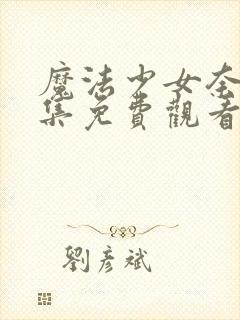 魔法少女奈
集免費觀看
劉彥斌